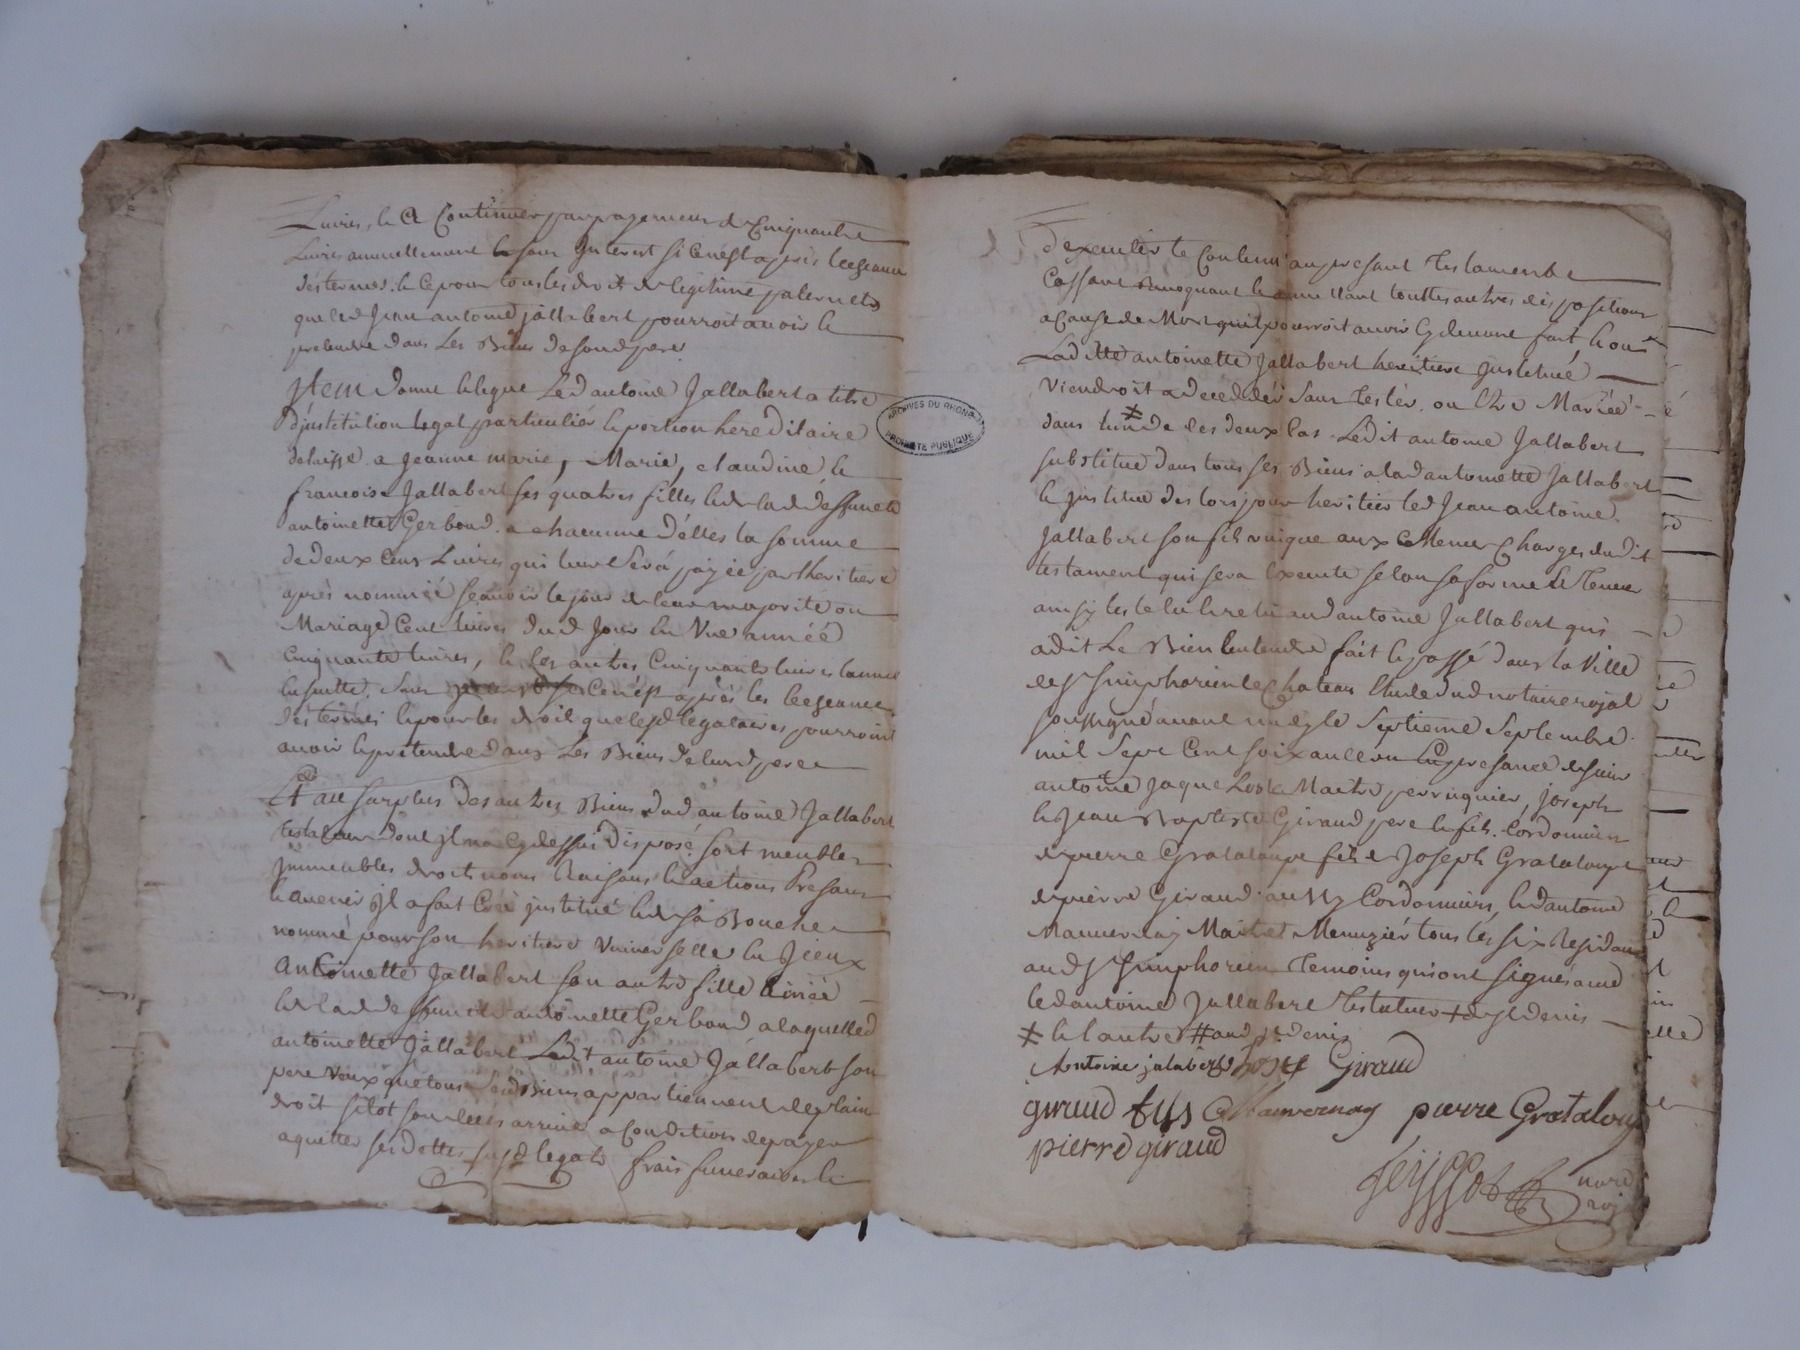 Livres, & A Continuer par payement de Cinquante
Livres annuellement & sans Interest si ce n'est après lecgeance
des termes. & ce pour tous les droit de legitime paternels
que led Jean antoine jallabert pourroit avoir &
pretendre dans Les Biens de sond pere
Item donne & legue Led antoine Jallabert a titre
d'justitution legat particulier & portion hereditaire
delaisse a Jeanne marie, Marie, claudine &
francoise Jallabert ses quatres filles & de lad deffuncte
antoinette Gerboud a chacunne d'elles la somme
de deux cens Livres qui leur Sera payée par lheritiere
après nommée scavoir le jour de leur majorité ou
Mariage Cent livres dud Jour en Une année
Cinquante livres, & Les autres Cinquante livres lannee
ensuitte. sans ce n'est après les lecgeance
des termes & pour les droit que lesd legataires pourroint
avoir & pretendre dans Les Biens de leurd pere
Et au surplus des autres Biens dud antoine Jallabert
testateur dont jl na cy dessus disposé soit meubles
Jmmeubles droit noms Raisons & actions Presans
& avenir Jl a fait Créé justitué & de sa Bouche
nommé pour son heritiere Universelle en Jeeux
antoinette Jallabert son autre fille ainée
& de lad deffuncte antoinette Gerboud a laquelled
antoinette Jallabert Ledit antoine Jallabert son
pere Veux que tous sesd Biens appartiennent de plain
droit sitot son deces arrivé a Condition de payer
aquitter ses dettes susd legats frais funeraires &
ARCHIVES DU RHONE
PROPRIETE PUBLIQUE
d'executer le Contenu au presant testament
Cassant Revoquant & annullant touttes autres dispositions
a Cause de Mort quil pourroit avoir Cy devant fait & ou
Laditte antoinette Jallabert heritiere justituée
Viendroit a decedder Sans Tester ou Etre Mariée
dans lun de ces deux Cas Ledit antoine Jallabert
substitue dans tous ses Biens a lad antoinette Jallabert
& justitue des lors pour heritier led Jean antoine
Jallabert son fils unique aux mêmes Charges dudit
testament qui sera Executé selon sa forme & Teneur
ainsy testé lu & relu aud antoine Jallabert qui
a dit Le Bien entendre fait & passé dans la Ville
de St Simphorien le Chateau Etude dud notaire royal
soussigné avant midy le Septieme Septembre
mil Sept Cent soixante un En presance de sieur
antoine Jaque Maitre perruquier, Joseph
& Jean Baptiste Giraud pere & fils Cordonniers
de pierre Grataloupe fils de Joseph Grataloupe
de pierre Giraud aussy Cordonniers, & dantoine
Mauvernay Maitre Menuzier tous les six Residans
aud St Simphorien Temoins qui ont signés avec
led antoine Jallabert Testateur
& lautre # aud St denis
Antoine jalabert Giraud
giraud fils Mauvernay pierre Grataloup
pierre giraud